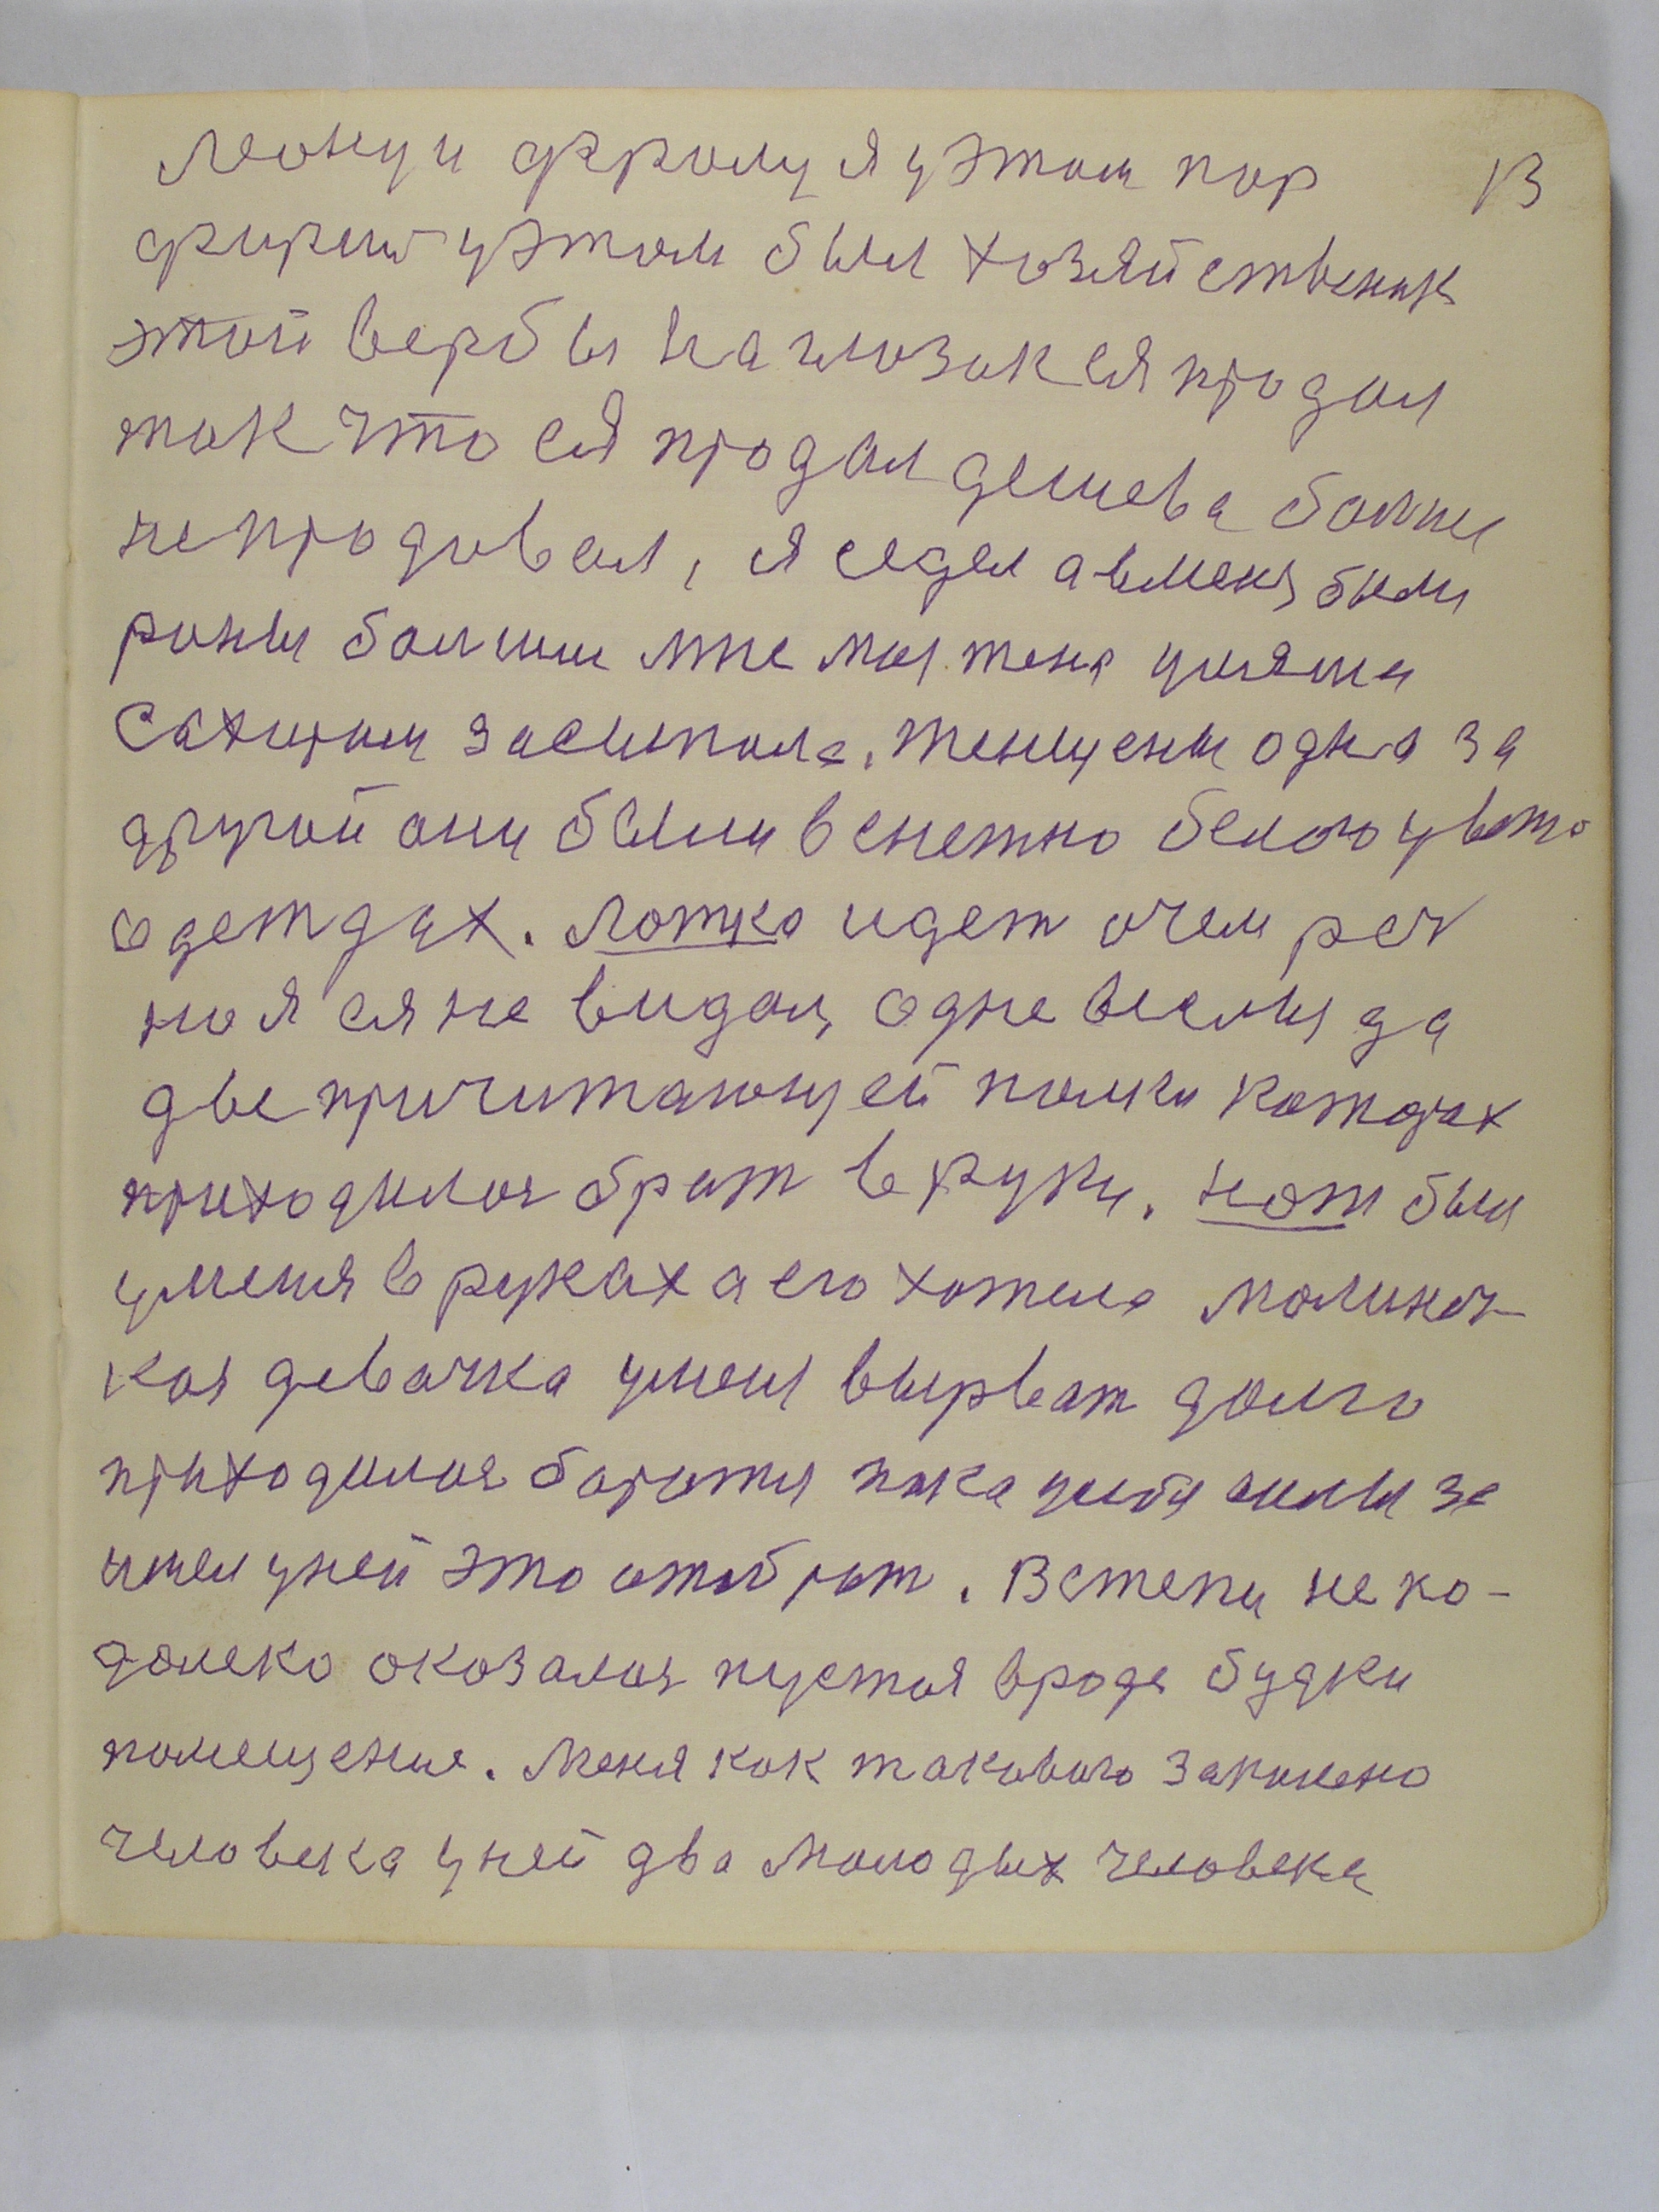 Леону и фролу я уэтом пор 13
фирию уэтом был хозяйственик
этой вербы на глозах ея продал
так что ея продал дешева болше
непродовал, я седел а вменя были
роны болшии мне моя жена
сахаром засыпала. женщены одна за
другой они были в снежно белого цвета
одеждах. Лотка идет очем реч
но я ея не видал, одне веслы да
две причитающей полки котдах
приходилося брат в руки. нож был
уменя в руках а его хотела малинкь
кая девачка уменя вырват долго
приходилося боротся пака
чител уней это отобрат. Встепи не ко-
далеко оказалося пустоя вроде будки
помещение. Меня как таковаго
человека уней два молодых человека